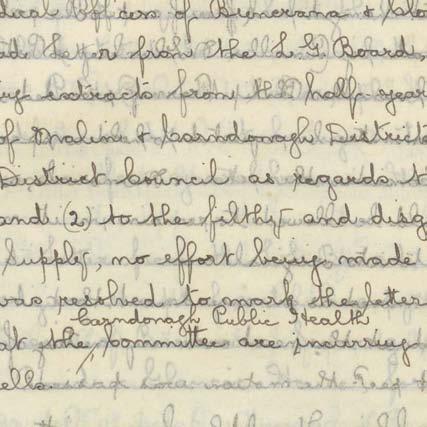 dical Officers of Buncrana & Clo
ad Letter from the L. G. Board,
ing extracts from the half-year
of Malin & Carndonagh District
District Council as regards t
and (2) to the filthy and disg
Supply, no effort being made
was resolved to mark the letter
Carndonagh Public Health
at the, Committee are incurring
ells.